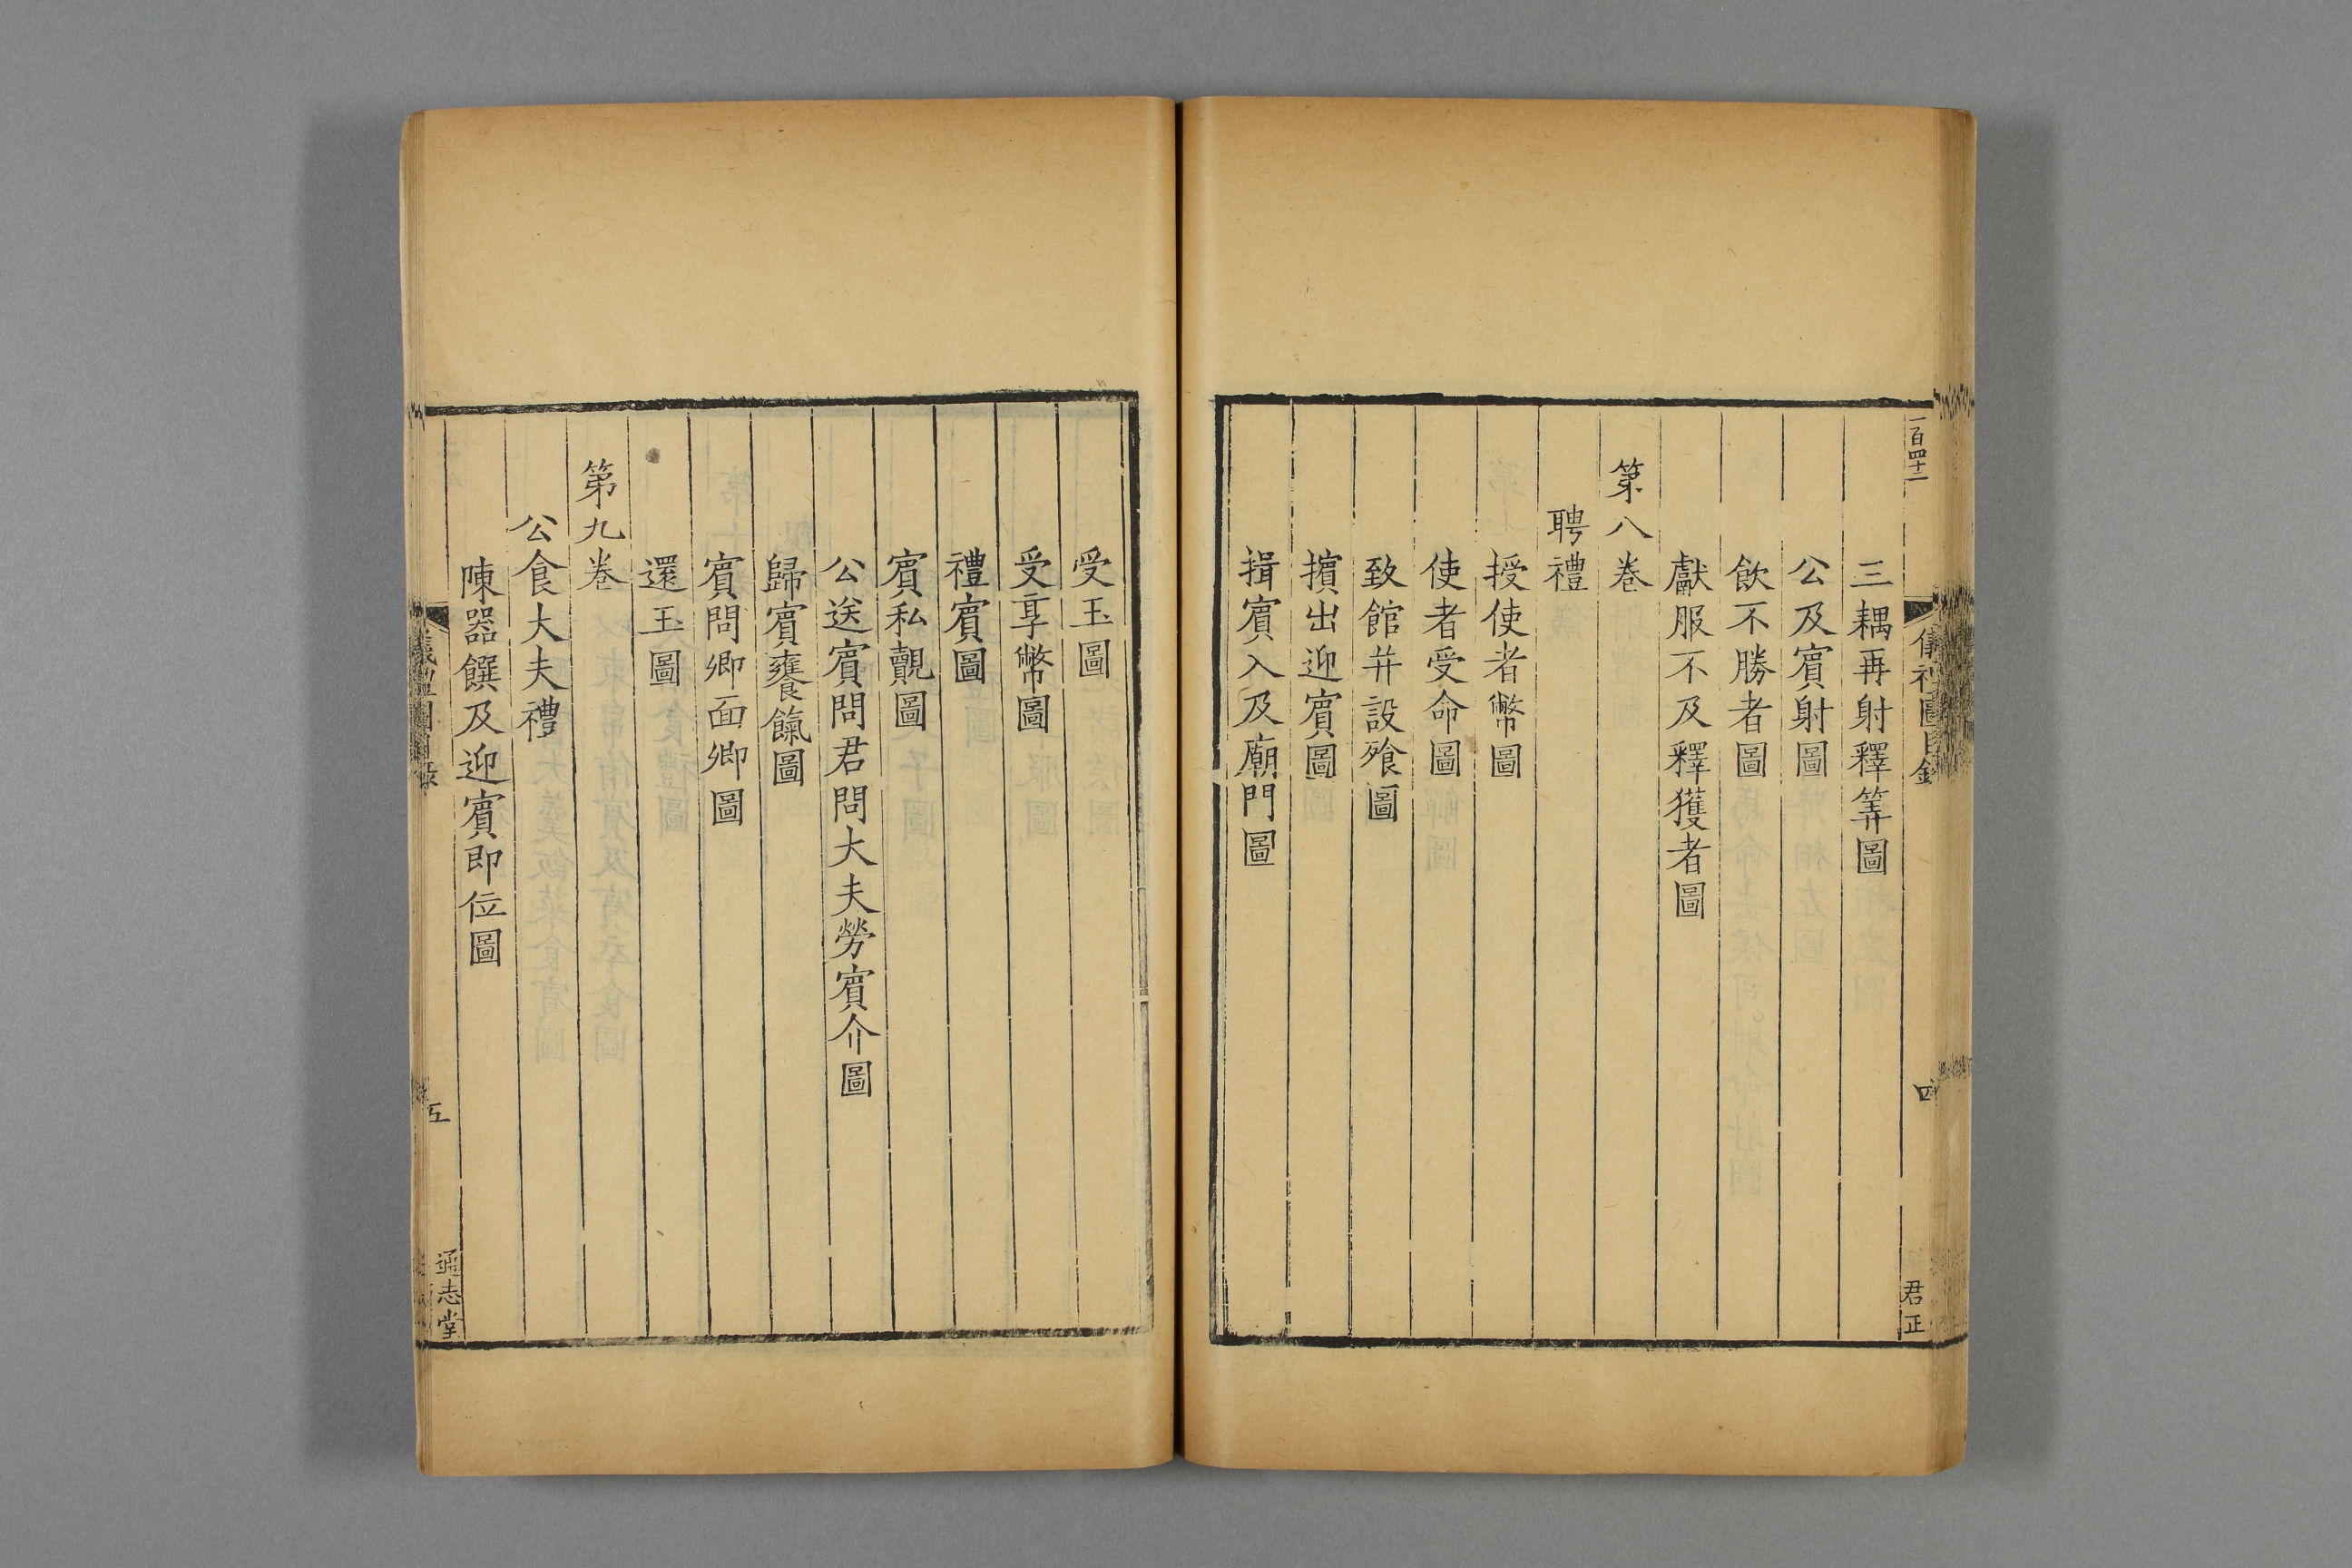 百四十二
儀禮圖目錄
四
君正
三耦再射釋筭圖
公及賔射圖
飲不勝者圖
獻服不及釋獲者圖
第八卷
聘禮
授使者幣圖
使者受命圖
致館并設飱圖
擯出迎賔圖
揖賔入及廟門圖
受玉圖
受享幣圖
禮賔圖
賔私覿圖
公送賔問君問大夫勞賔介圖
歸賔饔餼圖
賔問卿面卿圖
還玉圖
第九卷
公食大夫禮
陳器饌及迎賔即位圖
儀禮圖目錄
五
通志堂